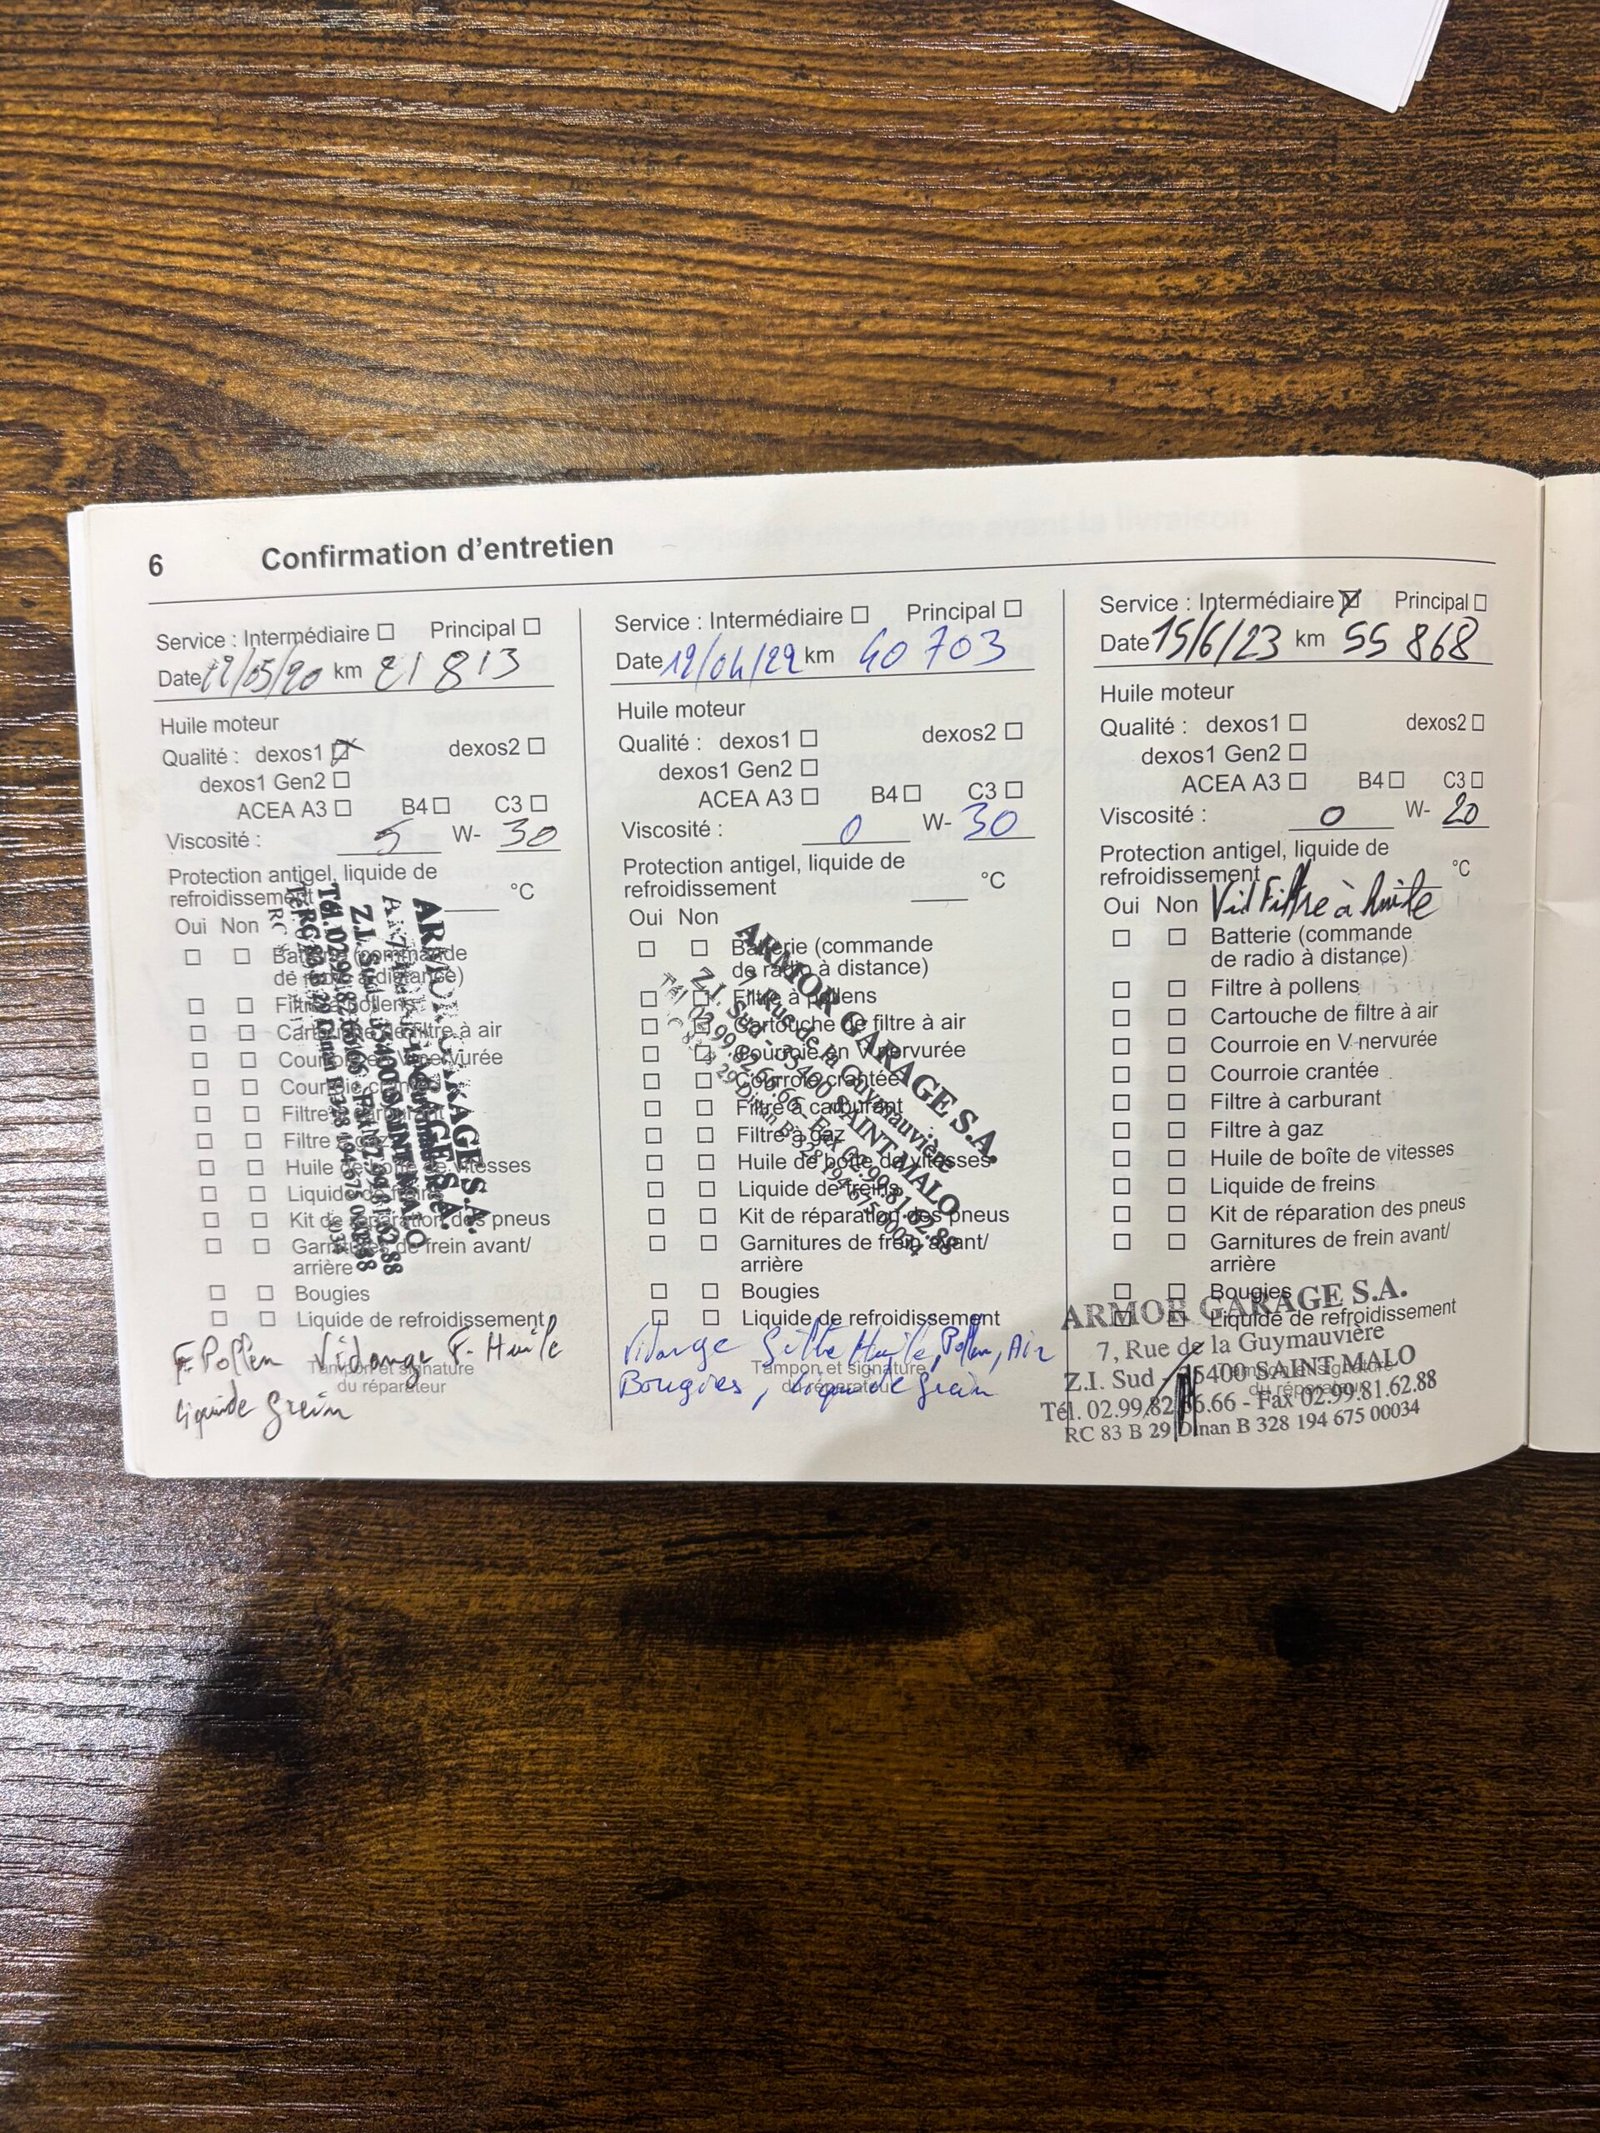 6 Confirmation d'entretien
Service : Intermédiaire ☐ Principal ☐
Date 12/05/20 km 21 813
Huile moteur
Qualité : dexos1 ☒ dexos2 ☐
dexos1 Gen2 ☐
ACEA A3 ☐ B4 ☐ C3 ☐
Viscosité : 5 W- 30
Protection antigel, liquide de
refroidissement °C
Oui Non
☐ ☐ Batterie (commande
de radio à distance)
☐ ☐ Filtre à pollens
☐ ☐ Cartouche de filtre à air
☐ ☐ Courroie en V nervurée
☐ ☐ Courroie crantée
☐ ☐ Filtre à carburant
☐ ☐ Filtre à gaz
☐ ☐ Huile de boîte de vitesses
☐ ☐ Liquide de freins
☐ ☐ Kit de réparation des pneus
☐ ☐ Garnitures de frein avant/
arrière
☐ ☐ Bougies
☐ ☐ Liquide de refroidissement
F. Pollen Vidange F. Huile
Tampon et signature
du réparateur
liquide frein
Service : Intermédiaire ☐ Principal ☐
Date 12/04/22 km 40 703
Huile moteur
Qualité : dexos1 ☐ dexos2 ☐
dexos1 Gen2 ☐
ACEA A3 ☐ B4 ☐ C3 ☐
Viscosité : 0 W- 30
Protection antigel, liquide de
refroidissement °C
Oui Non
☐ ☐ Batterie (commande
de radio à distance)
☐ ☐ Filtre à pollens
☐ ☐ Cartouche de filtre à air
☐ ☐ Courroie en V nervurée
☐ ☐ Courroie crantée
☐ ☐ Filtre à carburant
☐ ☐ Filtre à gaz
☐ ☐ Huile de boîte de vitesses
☐ ☐ Liquide de freins
☐ ☐ Kit de réparation des pneus
☐ ☐ Garnitures de frein avant/
arrière
☐ ☐ Bougies
☐ ☐ Liquide de refroidissement
ARMOR GARAGE S.A.
7, Rue de la Guymauvière
Z.I. Sud - 35400 SAINT MALO
Tél. 02.99.82.66.66 - Fax 02.99.81.62.88
RC 83 B 29 Dinan B 328 194 675 00034
Vidange filtre Huile, Pollen, Air
Tampon et signature
du réparateur
Bougies, liquide frein
Service : Intermédiaire ☒ Principal ☐
Date 15/6/23 km 55 868
Huile moteur
Qualité : dexos1 ☐ dexos2 ☐
dexos1 Gen2 ☐
ACEA A3 ☐ B4 ☐ C3 ☐
Viscosité : 0 W- 20
Protection antigel, liquide de
refroidissement °C
Oui Non Vid Filtre à huile
☐ ☐ Batterie (commande
de radio à distance)
☐ ☐ Filtre à pollens
☐ ☐ Cartouche de filtre à air
☐ ☐ Courroie en V nervurée
☐ ☐ Courroie crantée
☐ ☐ Filtre à carburant
☐ ☐ Filtre à gaz
☐ ☐ Huile de boîte de vitesses
☐ ☐ Liquide de freins
☐ ☐ Kit de réparation des pneus
☐ ☐ Garnitures de frein avant/
arrière
☐ ☐ Bougies
☐ ☐ Liquide de refroidissement
ARMOR GARAGE S.A.
7, Rue de la Guymauvière
Z.I. Sud - 35400 SAINT MALO
Tél. 02.99.82.66.66 - Fax 02.99.81.62.88
RC 83 B 29 Dinan B 328 194 675 00034